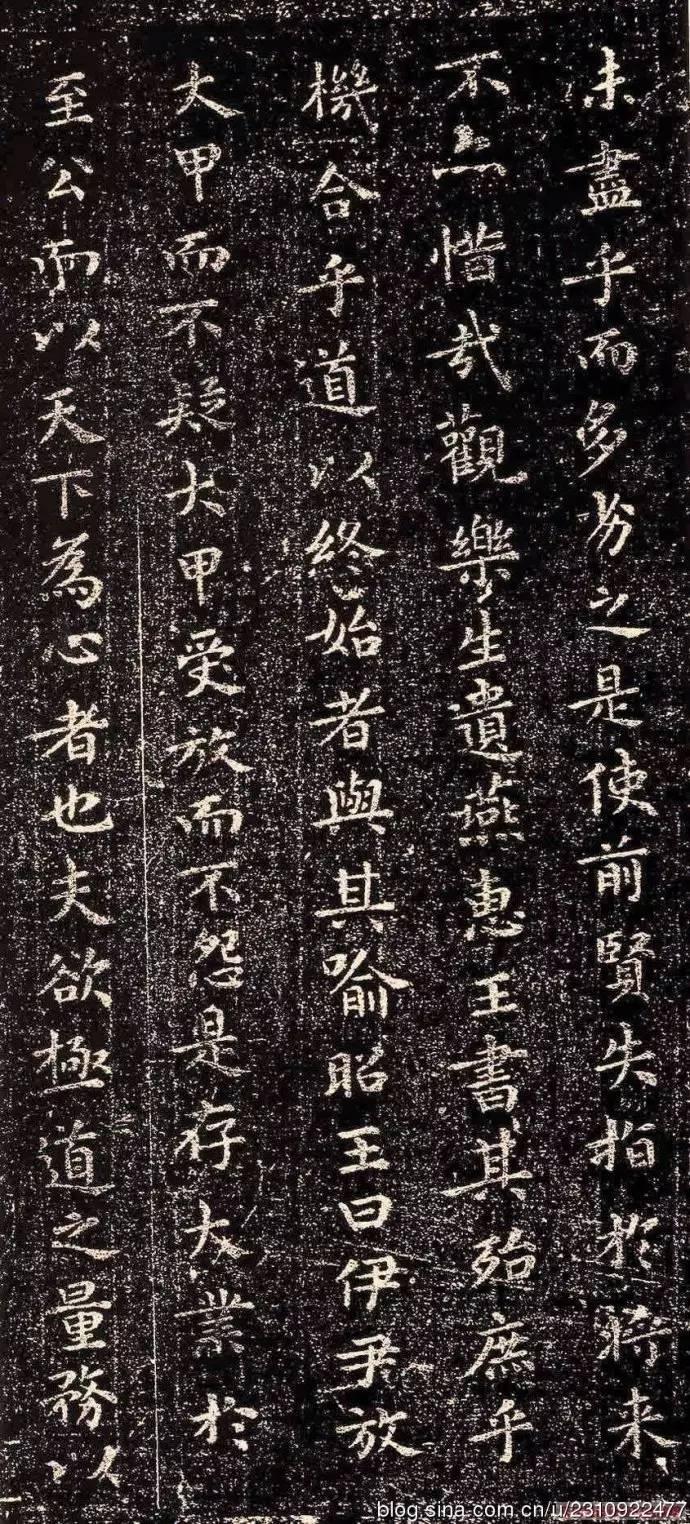 未盡乎而多劣之是使前賢失指於將来
不亦惜哉觀樂生遺燕惠王書其殆庶乎
機合乎道以終始者與其喻昭王曰伊尹放
大甲而不疑大甲受放而不怨是存大業於
至公而以天下為心者也夫欲極道之量務以
blog.sina.com.cn/u/2310922477